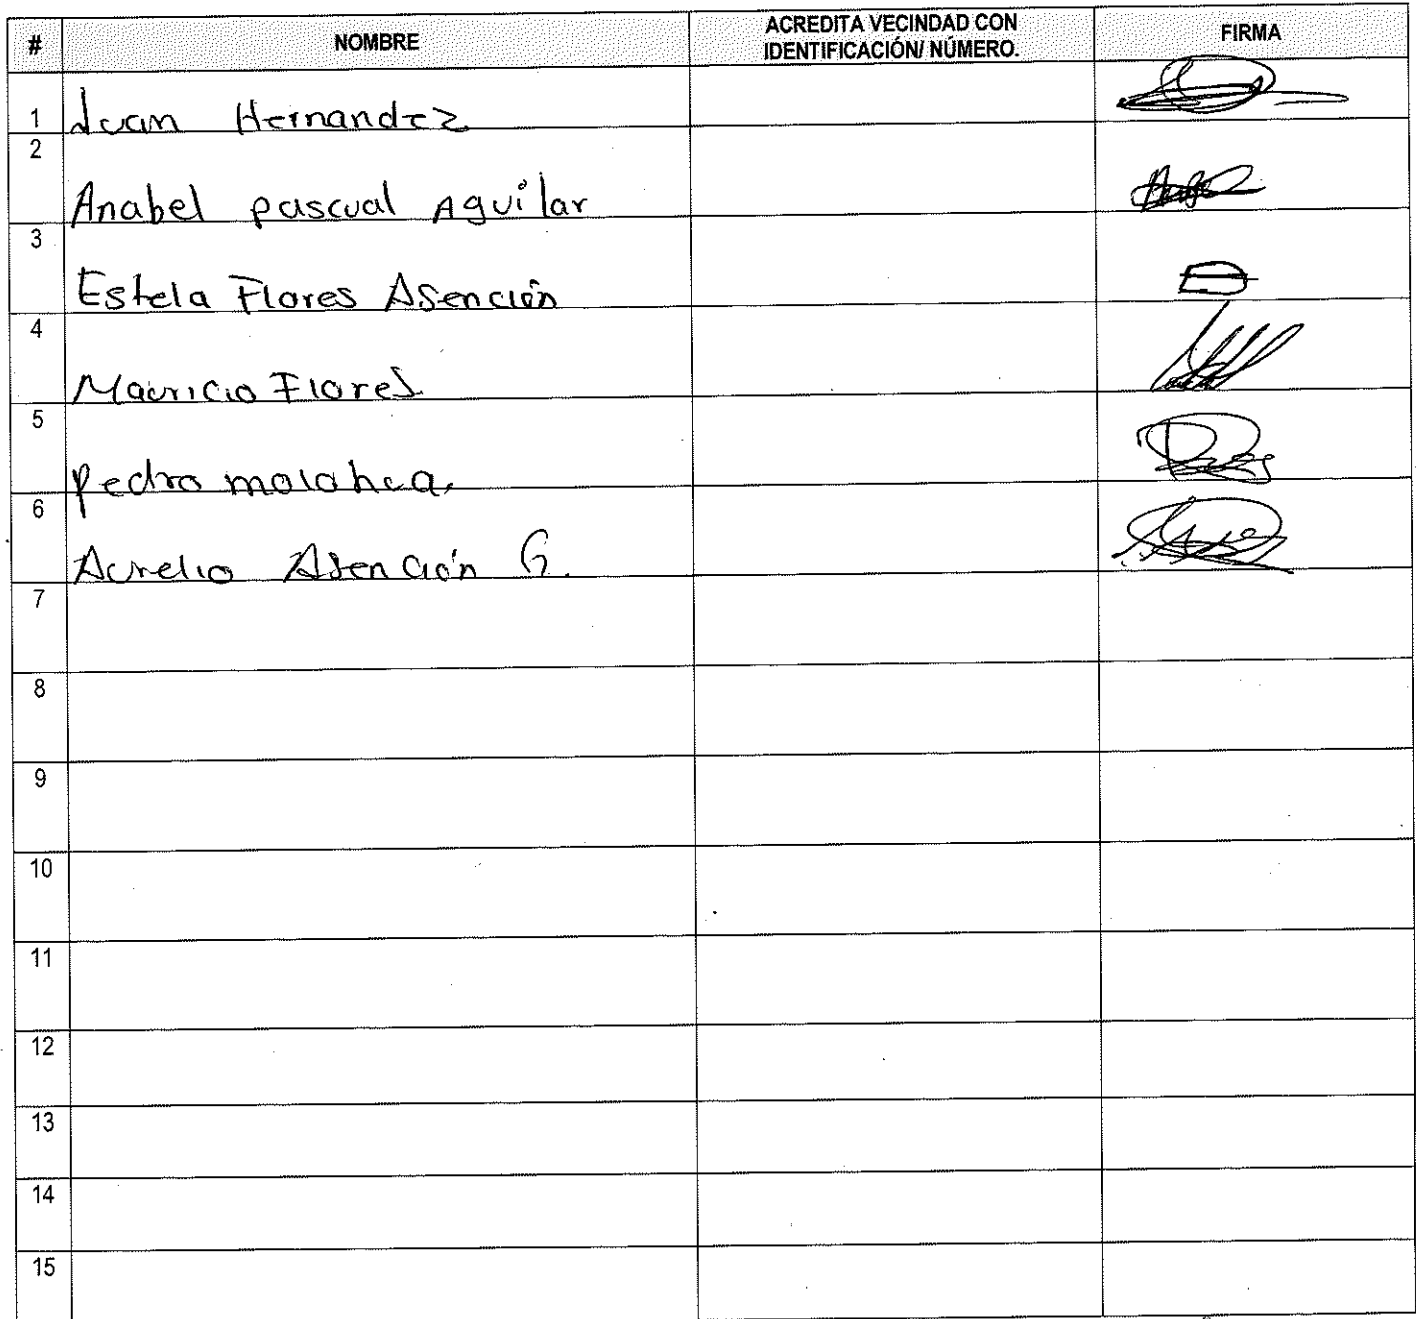 # NOMBRE ACREDITA VECINDAD CON IDENTIFICACIÓN/ NÚMERO. FIRMA
1 Juan Hernandez
2 Anabel pascual Aguilar
3 Estela Flores Asención
4 Mauricio Flores
5 Pedro molohua
6 Aurelio Asención G.
7
8
9
10
11
12
13
14
15